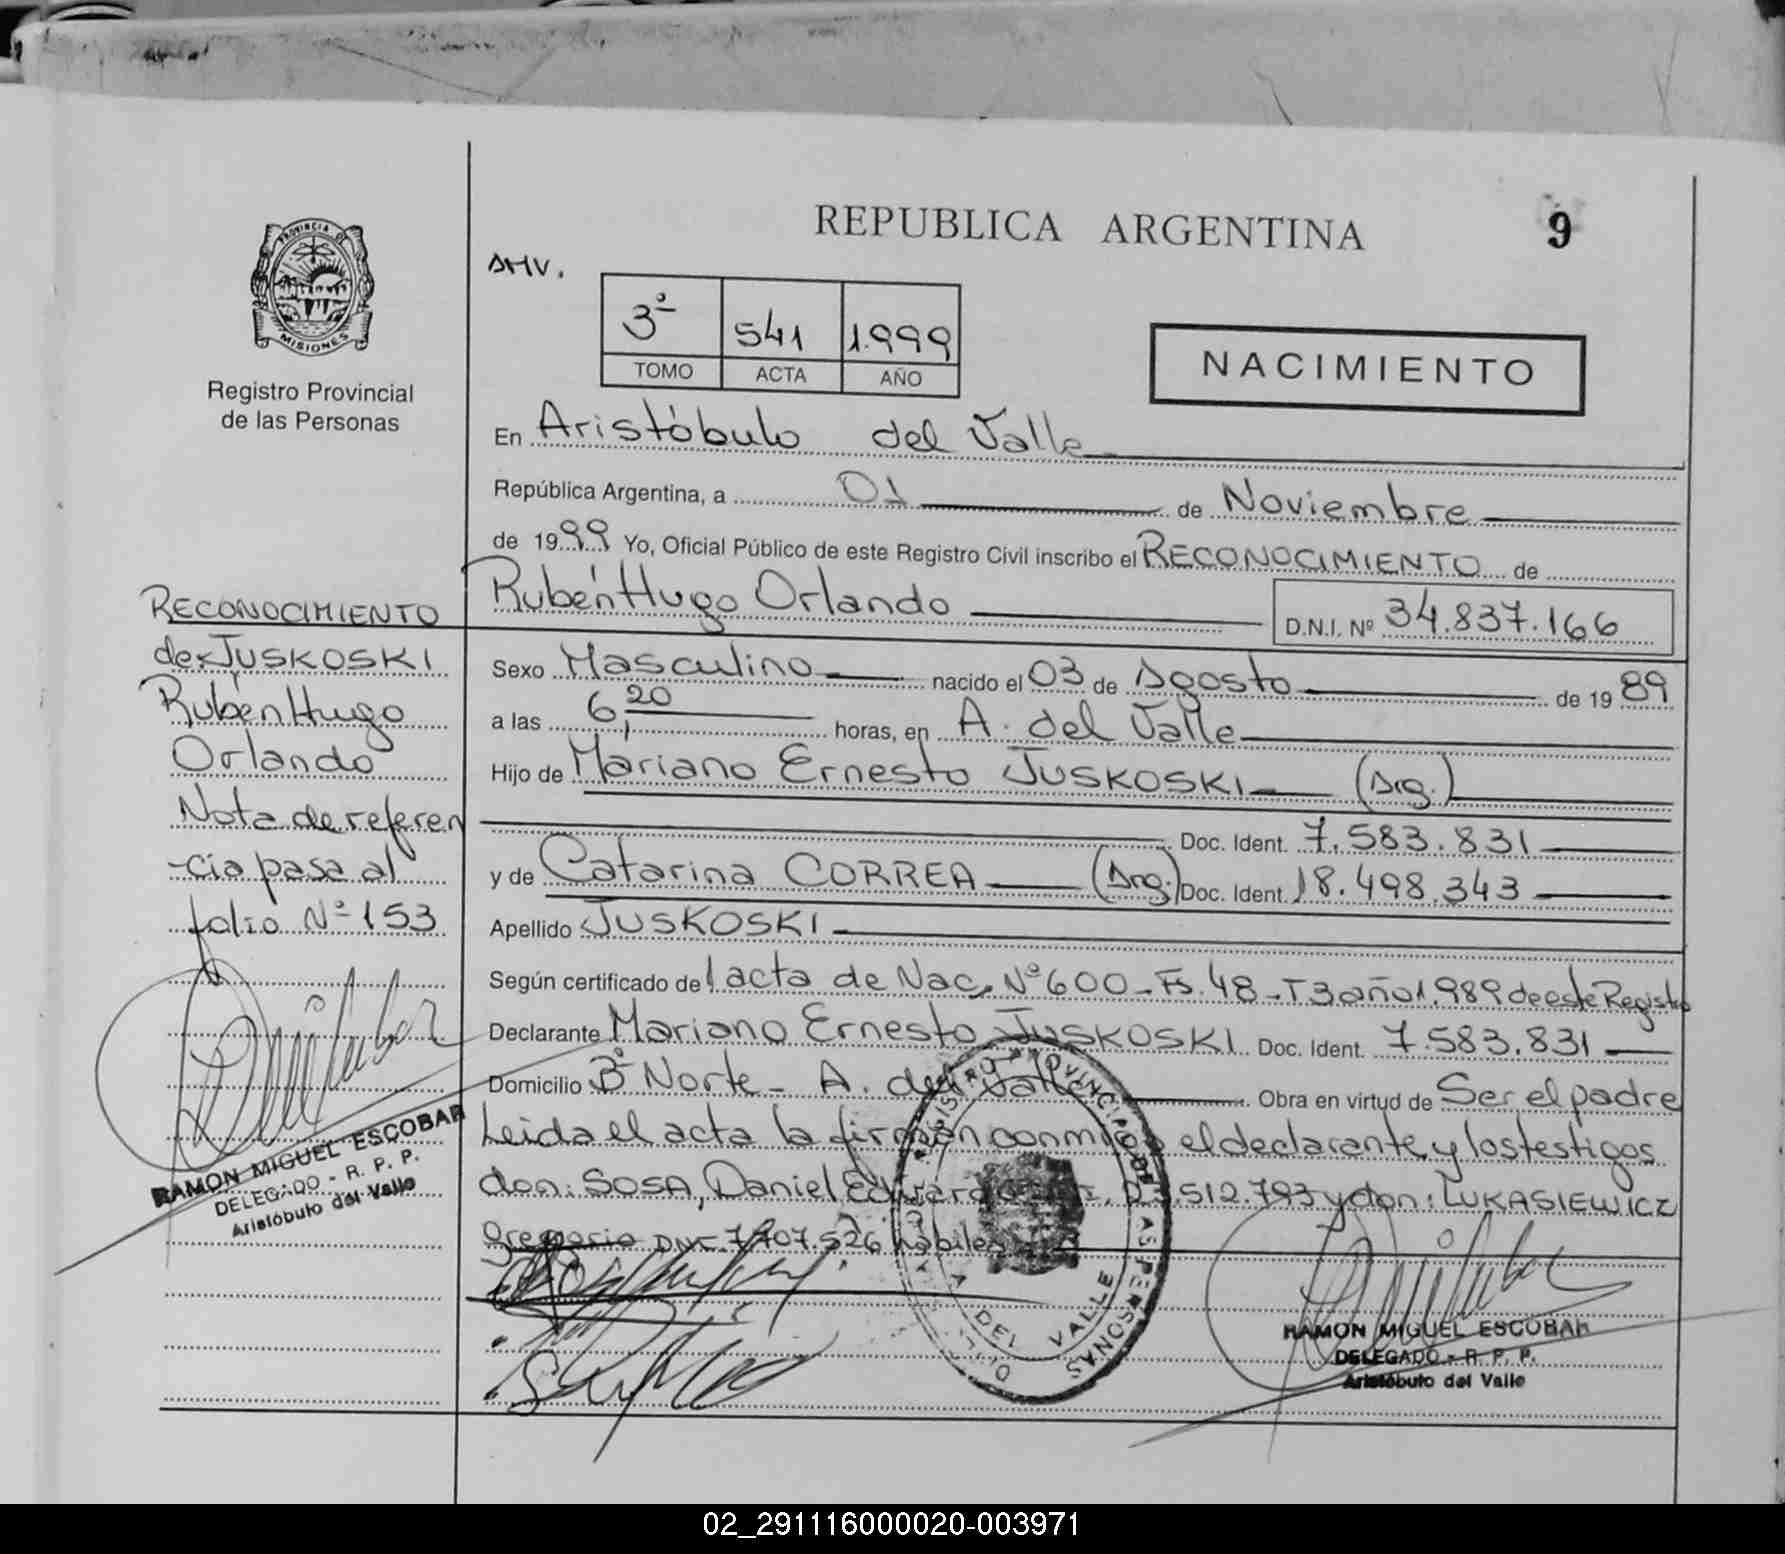 REPUBLICA ARGENTINA
9
PROVINCIA DE
MISIONES
Registro Provincial
de las Personas
AMV.
3º 541 1.999
TOMO ACTA AÑO
NACIMIENTO
En Aristóbulo del Valle
República Argentina, a 01 de Noviembre
de 1999 Yo, Oficial Público de este Registro Civil inscribo el RECONOCIMIENTO de
Rubén Hugo Orlando D.N.I. Nº 34.837.166
Sexo Masculino nacido el 03 de Agosto de 1989
a las 6,20 horas, en A. del Valle
Hijo de Mariano Ernesto JUSKOSKI (Arg.)
Doc. Ident. 7.583.831
y de Catarina CORREA (Arg.) Doc. Ident. 18.498.343
Apellido JUSKOSKI
Según certificado de l acta de Nac. Nº 600 - Fs. 48 - T 3 año 1.989 de este Registro
Declarante Mariano Ernesto JUSKOSKI Doc. Ident. 7.583.831
Domicilio Bº Norte - A. del Valle Obra en virtud de Ser el padre
Leida el acta la firman conmigo el declarante y los testigos
don: SOSA, Daniel Eduardo 512.793 y don: LUKASIEWICZ
Gregorio DNI. 7.707.526 hábiles
RECONOCIMIENTO
de: JUSKOSKI
Rubén Hugo
Orlando
Nota de referen
-cia pasa al
folio Nº 153
RAMON MIGUEL ESCOBAR
DELEGADO - R. P. P.
Aristóbulo del Valle
REGISTRO PROVINCIAL DE LAS PERSONAS
DEL VALLE
RAMON MIGUEL ESCOBAR
DELEGADO - R. P. P.
Aristóbulo del Valle
02_291116000020-003971